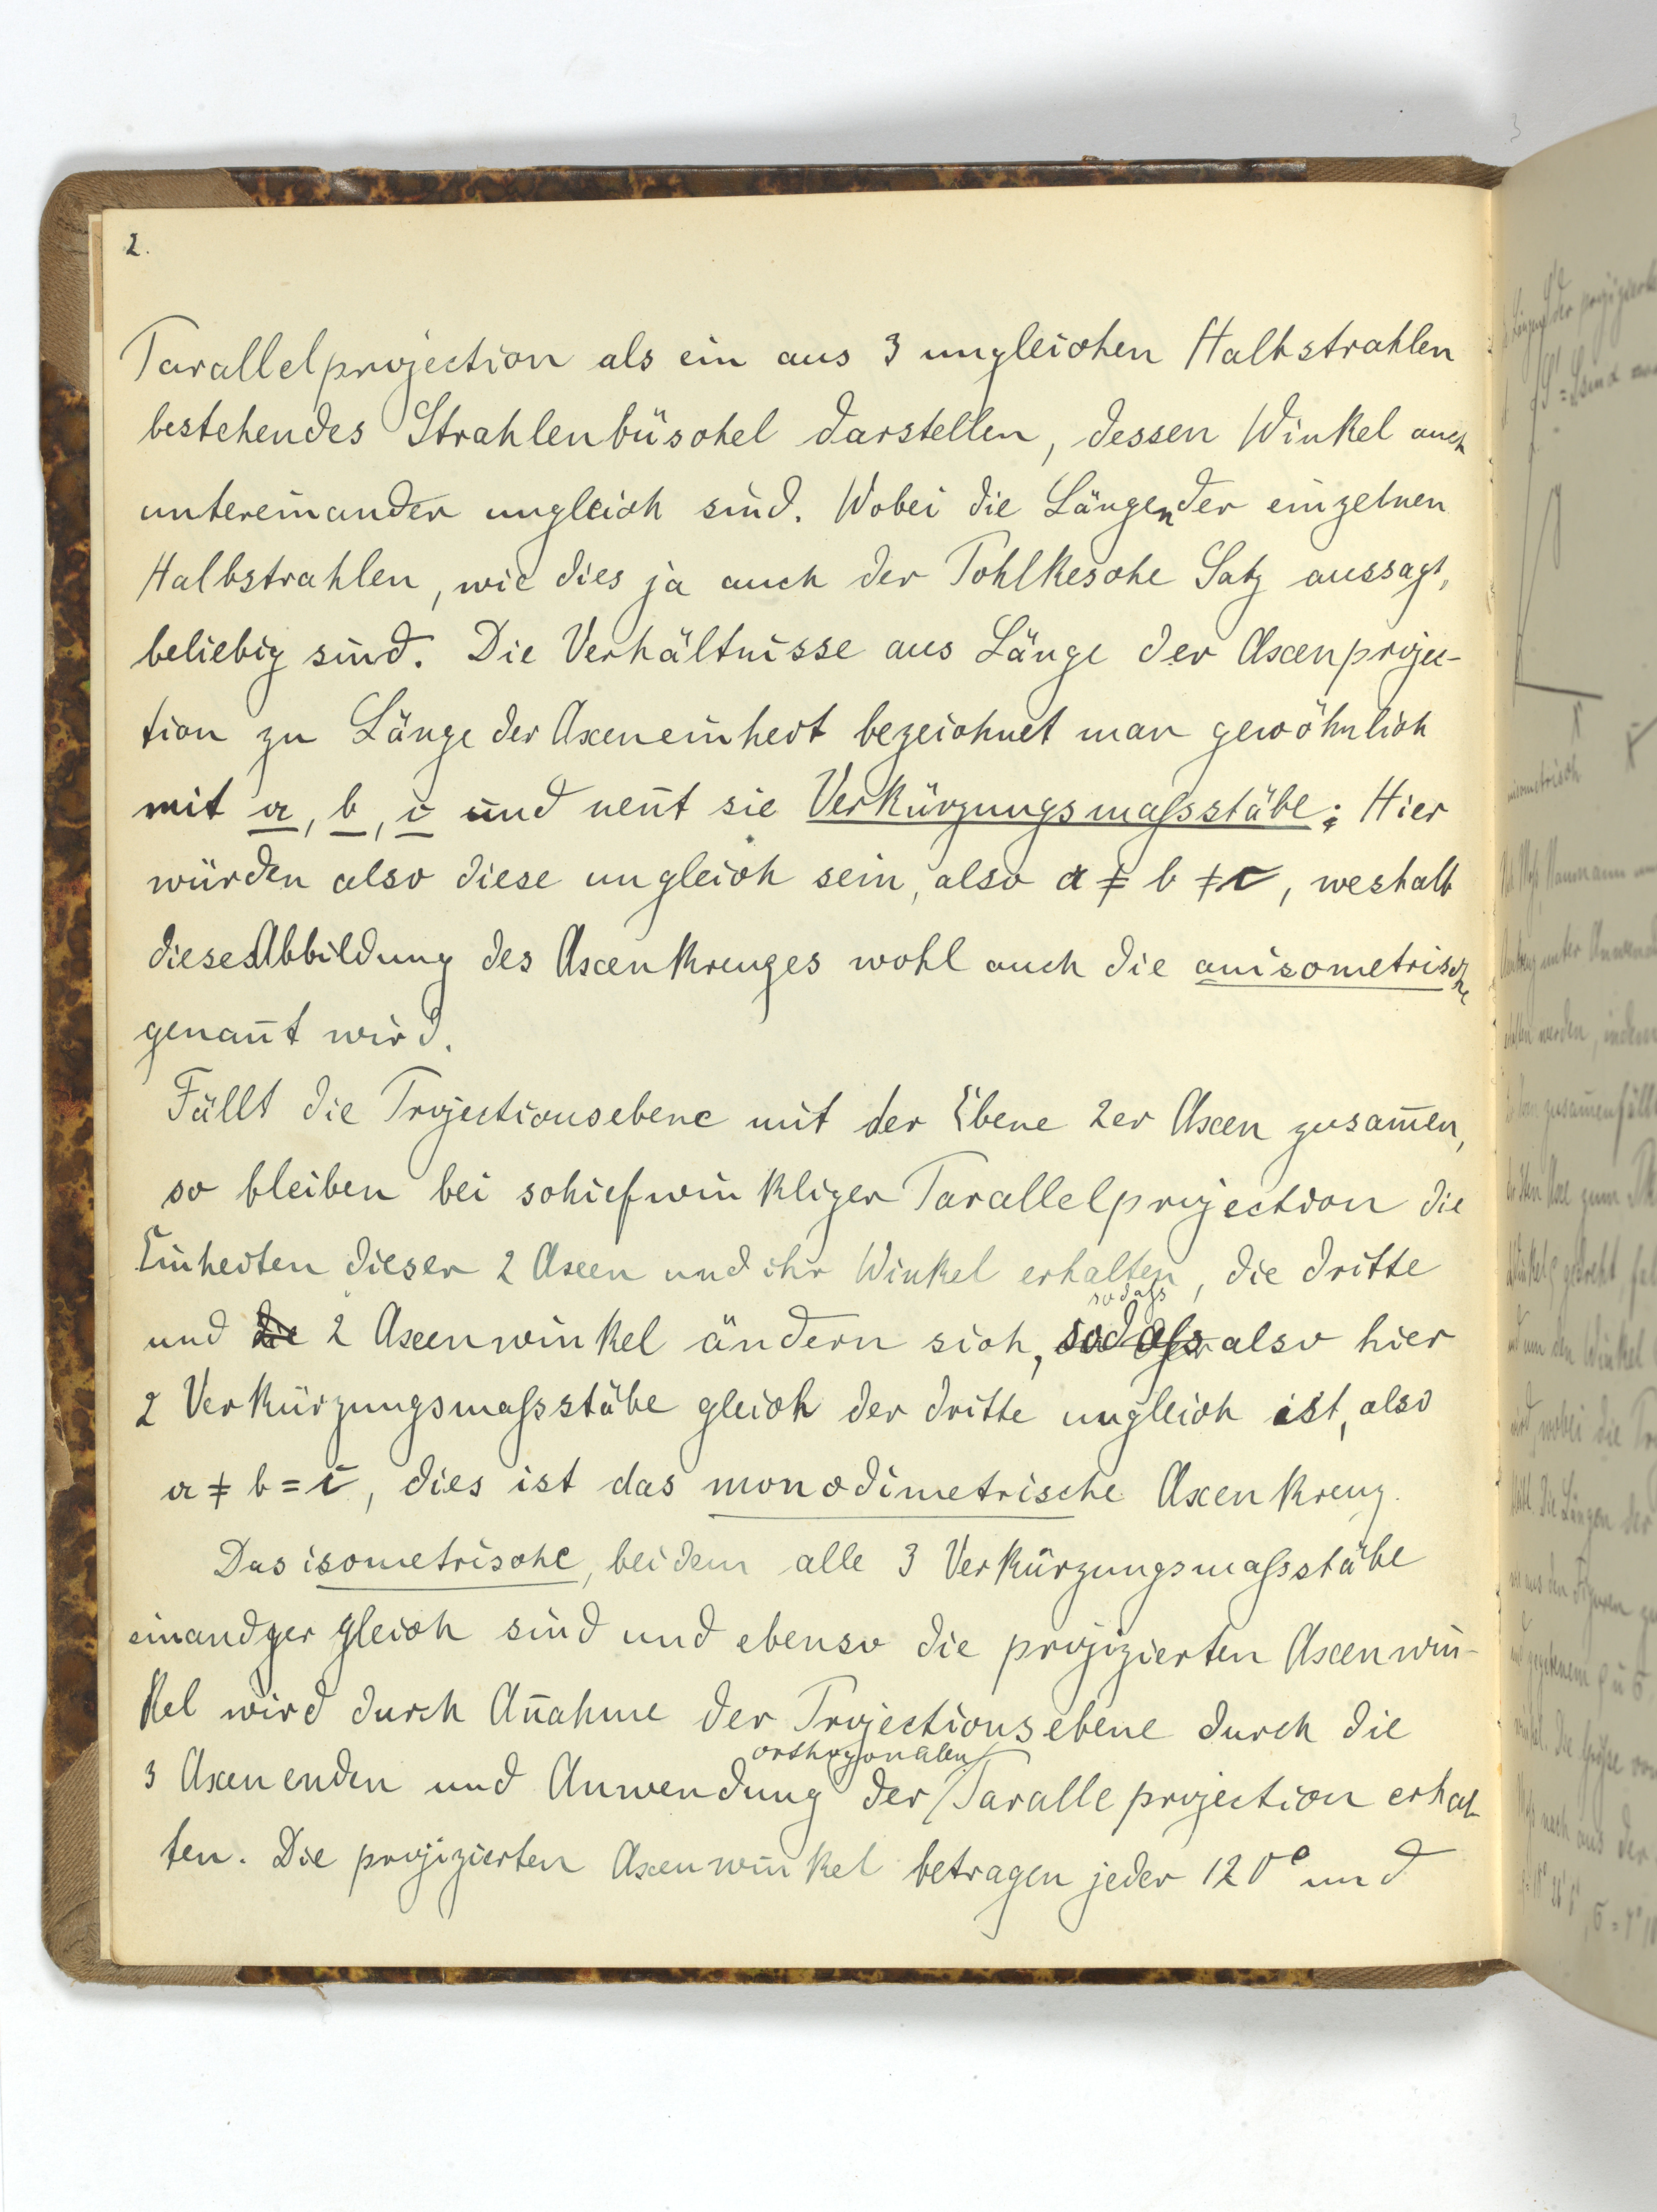 2.
Parallelprojection als ein aus 3 ungleichen Halbstrahlen
bestehendes Strahlenbüschel darstellen, dessen Winkel auch
untereinander ungleich sind. Wobei die Längen der einzelnen
Halbstrahlen, wie dies ja auch der Pohlkesche Satz aussagt,
beliebig sind. Die Verhältnisse aus Länge der Axenprojec-
tion zu Länge der Axeneinheit bezeichnet man gewöhnlich
mit a, b, c und nen̄t sie Verkürzungsmaſsstäbe; Hier
würden also diese ungleich sein, also a ≠ b ≠ c, weshalb
diese Abbildung des Axenkreuzes wohl auch die anisometrische
genan̄t wird.
Fällt die Projectionsebene mit der Ebene 2er Axen zusam̄en,
so bleiben bei schiefwinkliger Parallelprojection die
Einheiten dieser 2 Axen und ihr Winkel erhalten, die dritte
sodaſs
und die 2 Axenwinkel ändern sich, sodaſs also hier
2 Verkürzungsmaſsstäbe gleich der dritte ungleich ist, also
a ≠ b = c, dies ist das monodimetrische Axenkreuz.
Das isometrische, bei dem alle 3 Verkürzungsmaſsstäbe
einander gleich sind und ebenso die projizierten Axenwin-
kel wird durch An̄ahme der Projectionsebene durch die
orthogonalen
3 Axenenden und Anwendung der Paralleprojection erhal
ten. Die projizierten Axenwinkel betragen jeder 120° und